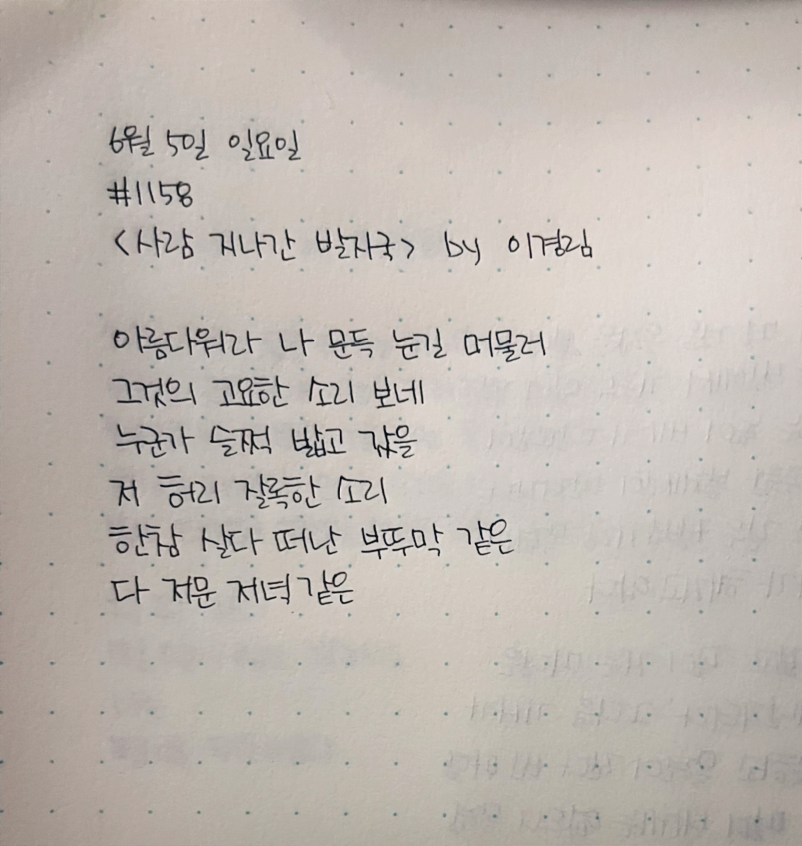 6월 5일 일요일
#1158
<사람 지나간 발자국> by 이경림
아름다워라 나 문득 눈길 머물러
그것의 고요한 소리 보네
누군가 슬쩍 밟고 갔을
저 허리 잘록한 소리
한참 살다 떠난 부뚜막 같은
다 저문 저녁 같은